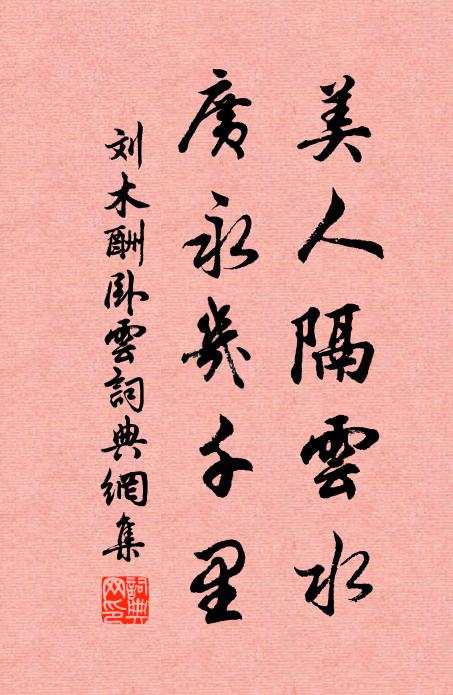 美人隔雲水
廣永幾千里
刘木酬卧雲詞典網集
詞典网印